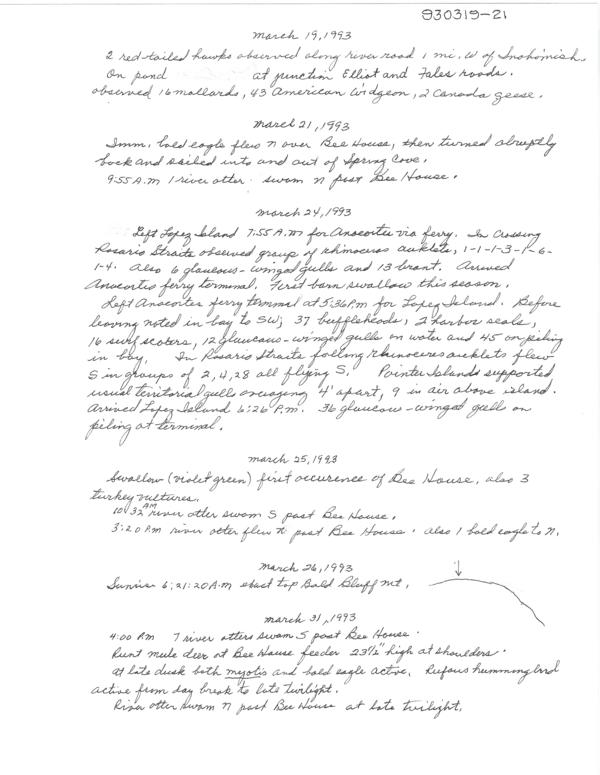 930319-21
March 19, 1993
2 red-tailed hawks observed along river road 1 mi. W of Snohomish.
On pond at junction Elliot and Fales roads.
observed 16 mallards, 43 American Widgeon, 2 Canada geese.
March 21, 1993
Imm. bald eagle flew N over Bee House, then turned abruptly
back and sailed into and out of Spring Cove.
9:55 A.M 1 river otter swam N past Bee House.
March 24, 1993
Left Lopez Island 7:55 A.M for Anacortes via ferry. In Crossing
Rosario Straits observed group of rhinoceros auklets, 1-1-1-3-1-6-
1-4. Also 6 glaucous-winged gulls and 13 brant. Arrived
Anacortes ferry terminal. First barn swallow this season.
Left Anacortes ferry terminal at 5:36 P.M for Lopez Island. Before
leaving noted in bay to SW; 37 buffleheads, 2 harbor seals,
16 surf scoters, 12 glaucous-winged gulls on water and 45 on piling
in bay. In Rosario Straits folling rhinoceros auklets flew
S in groups of 2, 4, 28 all flying S. Pointer Islands supported
usual territorial gulls averaging 4' apart, 9 in air above island.
Arrived Lopez Island 6:26 P.M. 36 glaucous-winged gull on
piling at terminal.
March 25, 1993
Swallow (violet green) first occurence of Bee House, also 3
turkey vultures.
10:32 AM river otter swam S past Bee House.
3:20 P.M river otter flew N past Bee House. Also 1 bald eagle to N.
March 26, 1993
Sunrise 6:21:20 A.M east top Bald Bluff mt.
March 31, 1993
4:00 P.M 7 river otters swam S past Bee House.
Runt mule deer at Bee House feeder 23½" high at shoulders.
At late dusk both myotis and bald eagle active. Rufous hummingbird
active from day break to late twilight.
River otter swam N past Bee House at late twilight.